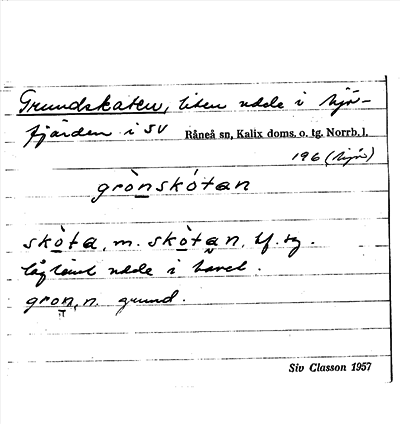 Grundskaten, liten udde i Hjo-
fjärden i SV Råneå sn, Kalix doms. o. tg. Norrb. l.
196
grònskótan
skòta, m. skòtan, bf. sg.
låglänt udde i havet.
gron, n. grund.
Siv Classon 1957